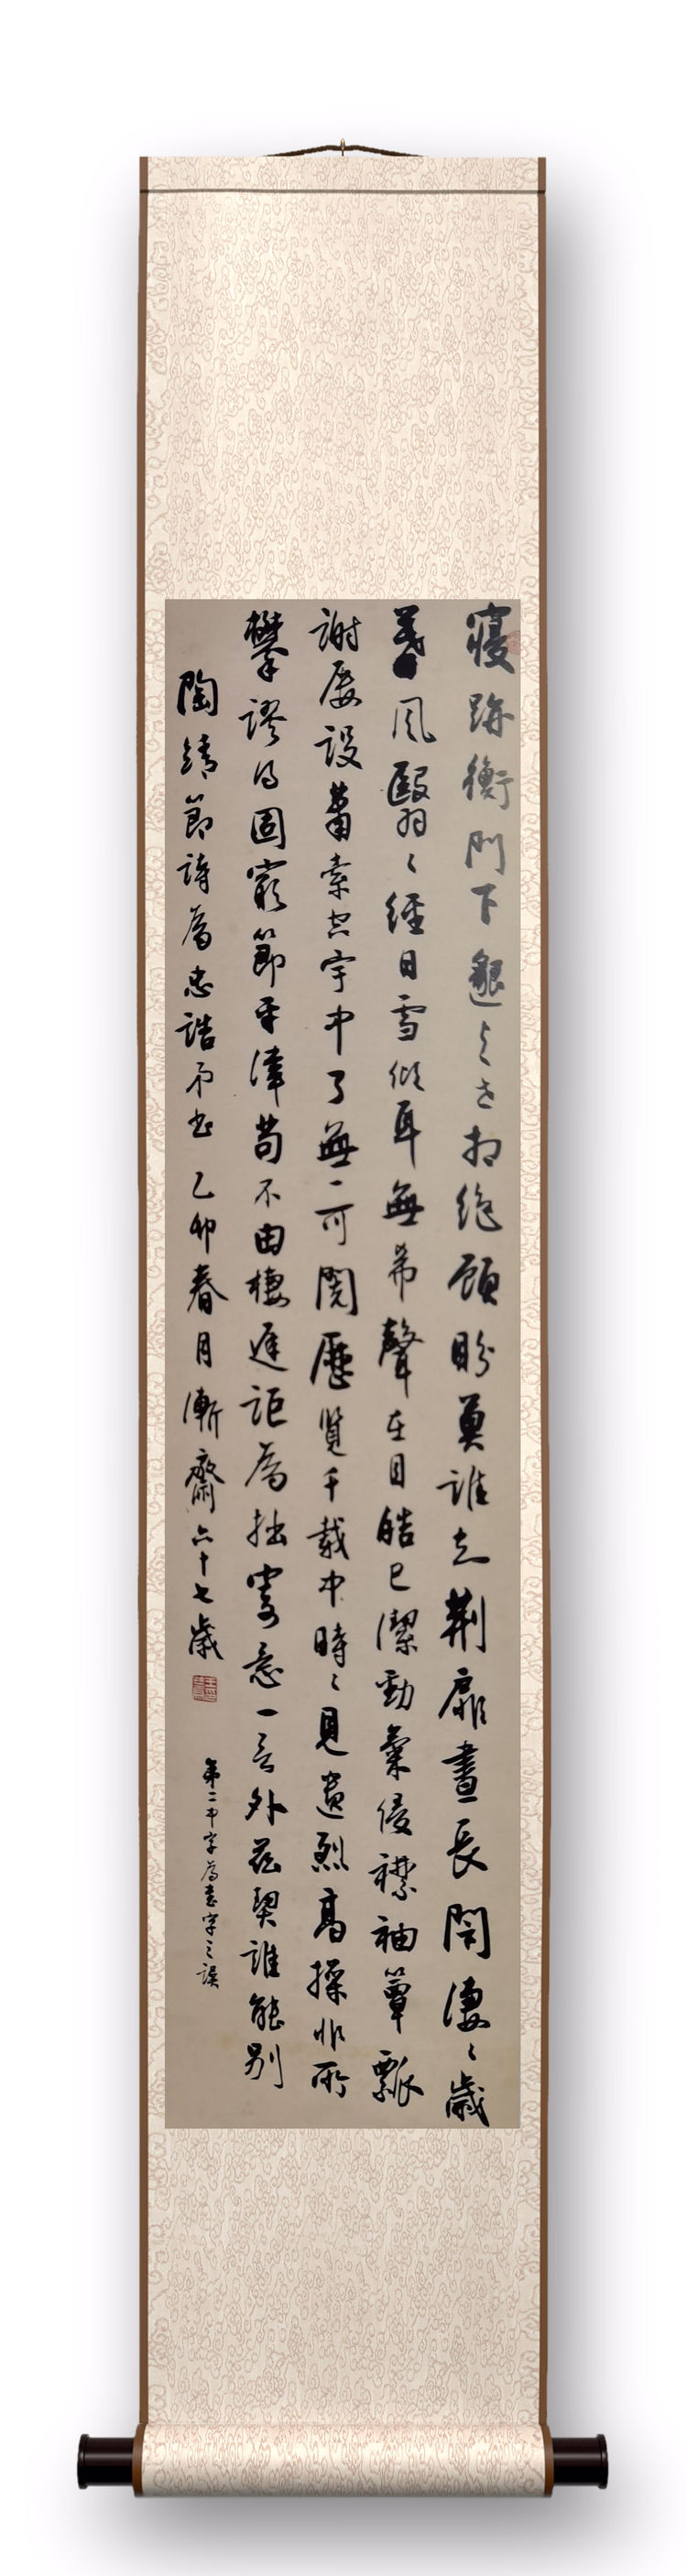 寢跡衡門下邈與世相絕顧盼莫誰知荊扉晝長閇淒〻歲
暮風翳〻經日雪傾耳無希聲在目皓已潔勁氣侵襟袖簞瓢
謝屢設蕭索空宇中了無一可閱歷覽千載中時〻見遺烈高操非所
攀謬得固窮節平津苟不由棲遲詎為拙寄意一言外茲契誰能別
陶靖節詩為忠誥弟書 乙卯春月漸齋六十七歲
第二中字為書字之誤